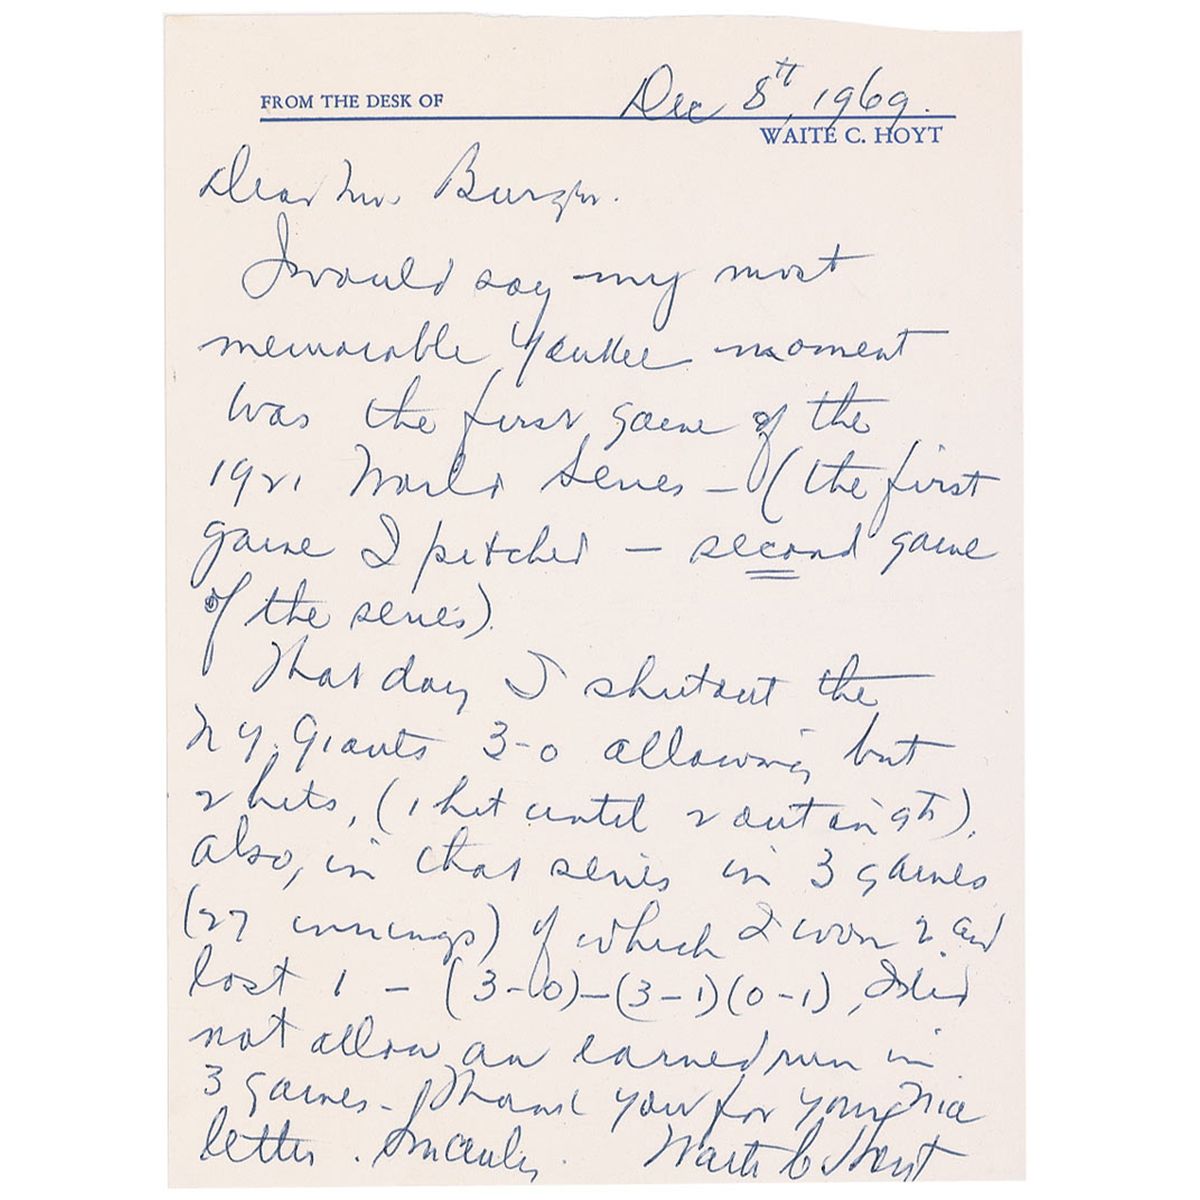 FROM THE DESK OF
Dec 8th, 1969.
WAITE C. HOYT
Dear Mr. Burger.
I would say my most
memorable Yankee moment
was the first game of the
1921 World Series - (the first
game I pitched - second game
of the series).
That day I shutout the
N Y. Giants 3-0 allowing but
2 hits, (1 hit until 2 out in 9th).
also, in that series in 3 games
(27 innings) of which I won 2 and
lost 1 - (3-0)-(3-1)(0-1), I did
not allow an earned run in
3 games- Thank you for your nice
letter. Sincerely. Waite C Hoyt